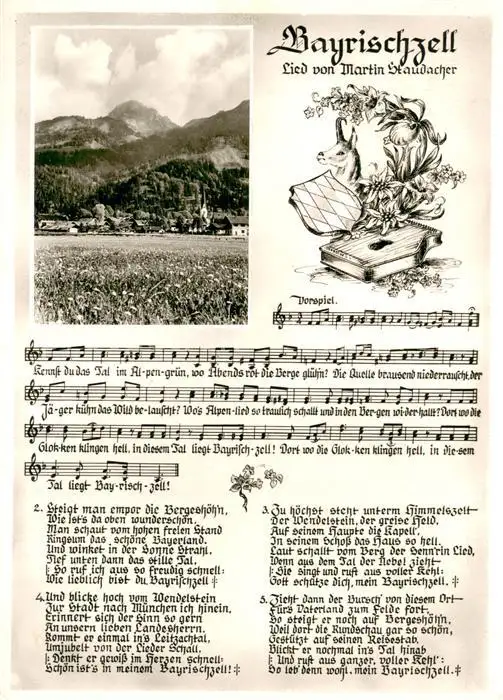 Bayrischzell
Lied von Martin Staudacher
Vorspiel.
Kennst du das Tal im Al-pen-grün, wo Abends rot die Berge glühn? Die Quelle brausend niederrauscht, der
Jä-ger kühn das Wild be-lauscht? Wo's Alpen-lied so traulich schallt und in den Ber-gen wi-der hallt? Dort wo die
Glok-ken klingen hell, in diesem Tal liegt Bayrisch-zell! Dort wo die Glok-ken klingen hell, in die-sem
Tal liegt Bay-risch-zell!
2. Steigt man empor die Bergeshöh'n,
Wie ist's da oben wunderschön.
Man schaut vom hohen freien Stand
Ringsum das schöne Bayerland.
Und winket in der Sonne Strahl,
Tief unten dann das stille Tal,
|: So ruf ich aus so freudig schnell:
Wie lieblich bist du, Bayrischzell :|
3. Zu höchst steht unterm Himmelszelt
Der Wendelstein, der greise Held,
Auf seinem Haupte die Kapell',
In seinem Schoß das Haus so hell.
Laut schallt vom Berg der Senn'rin Lied,
Wenn aus dem Tal der Nebel zieht
|: Sie singt und ruft aus voller Kehl:
Gott schütze dich, mein Bayrischzell. :|
4. Und blicke hoch vom Wendelstein
Zur Stadt nach München ich hinein,
Erinnert sich der Sinn so gern
An unsern lieben Landesherrn.
Kommt er einmal in's Leitzachtal,
Umjubelt von der Lieder Schall,
|: Denkt er gewiß im Herzen schnell:
Schön ist's in meinem Bayrischzell! :|
5. Zieht dann der Bursch' von diesem Ort
Für's Vaterland zum Felde fort,
So steigt er noch auf Bergeshöhn,
Weil dort die Rundschau gar so schön,
Gestützt auf seinen Reisestab,
Blickt er nochmal in's Tal hinab
|: Und ruft aus ganzer, voller Kehl':
So leb denn wohl, mein Bayrischzell. :|